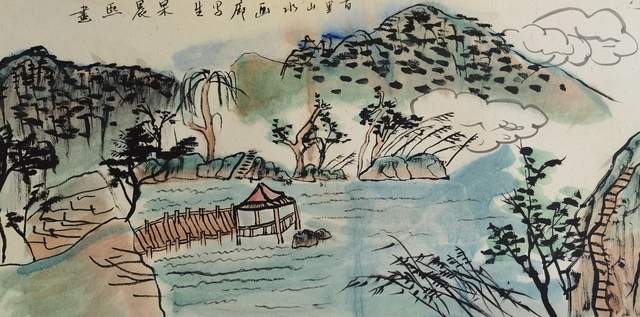 百里山水画廊写生 果晨熙画